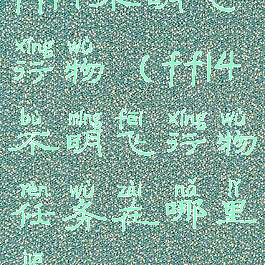 xíng wù
行物(ffl4
bù míng fēi xíng wù
不明飞行物
rèn wù zài nǎ lǐ
任务在哪里